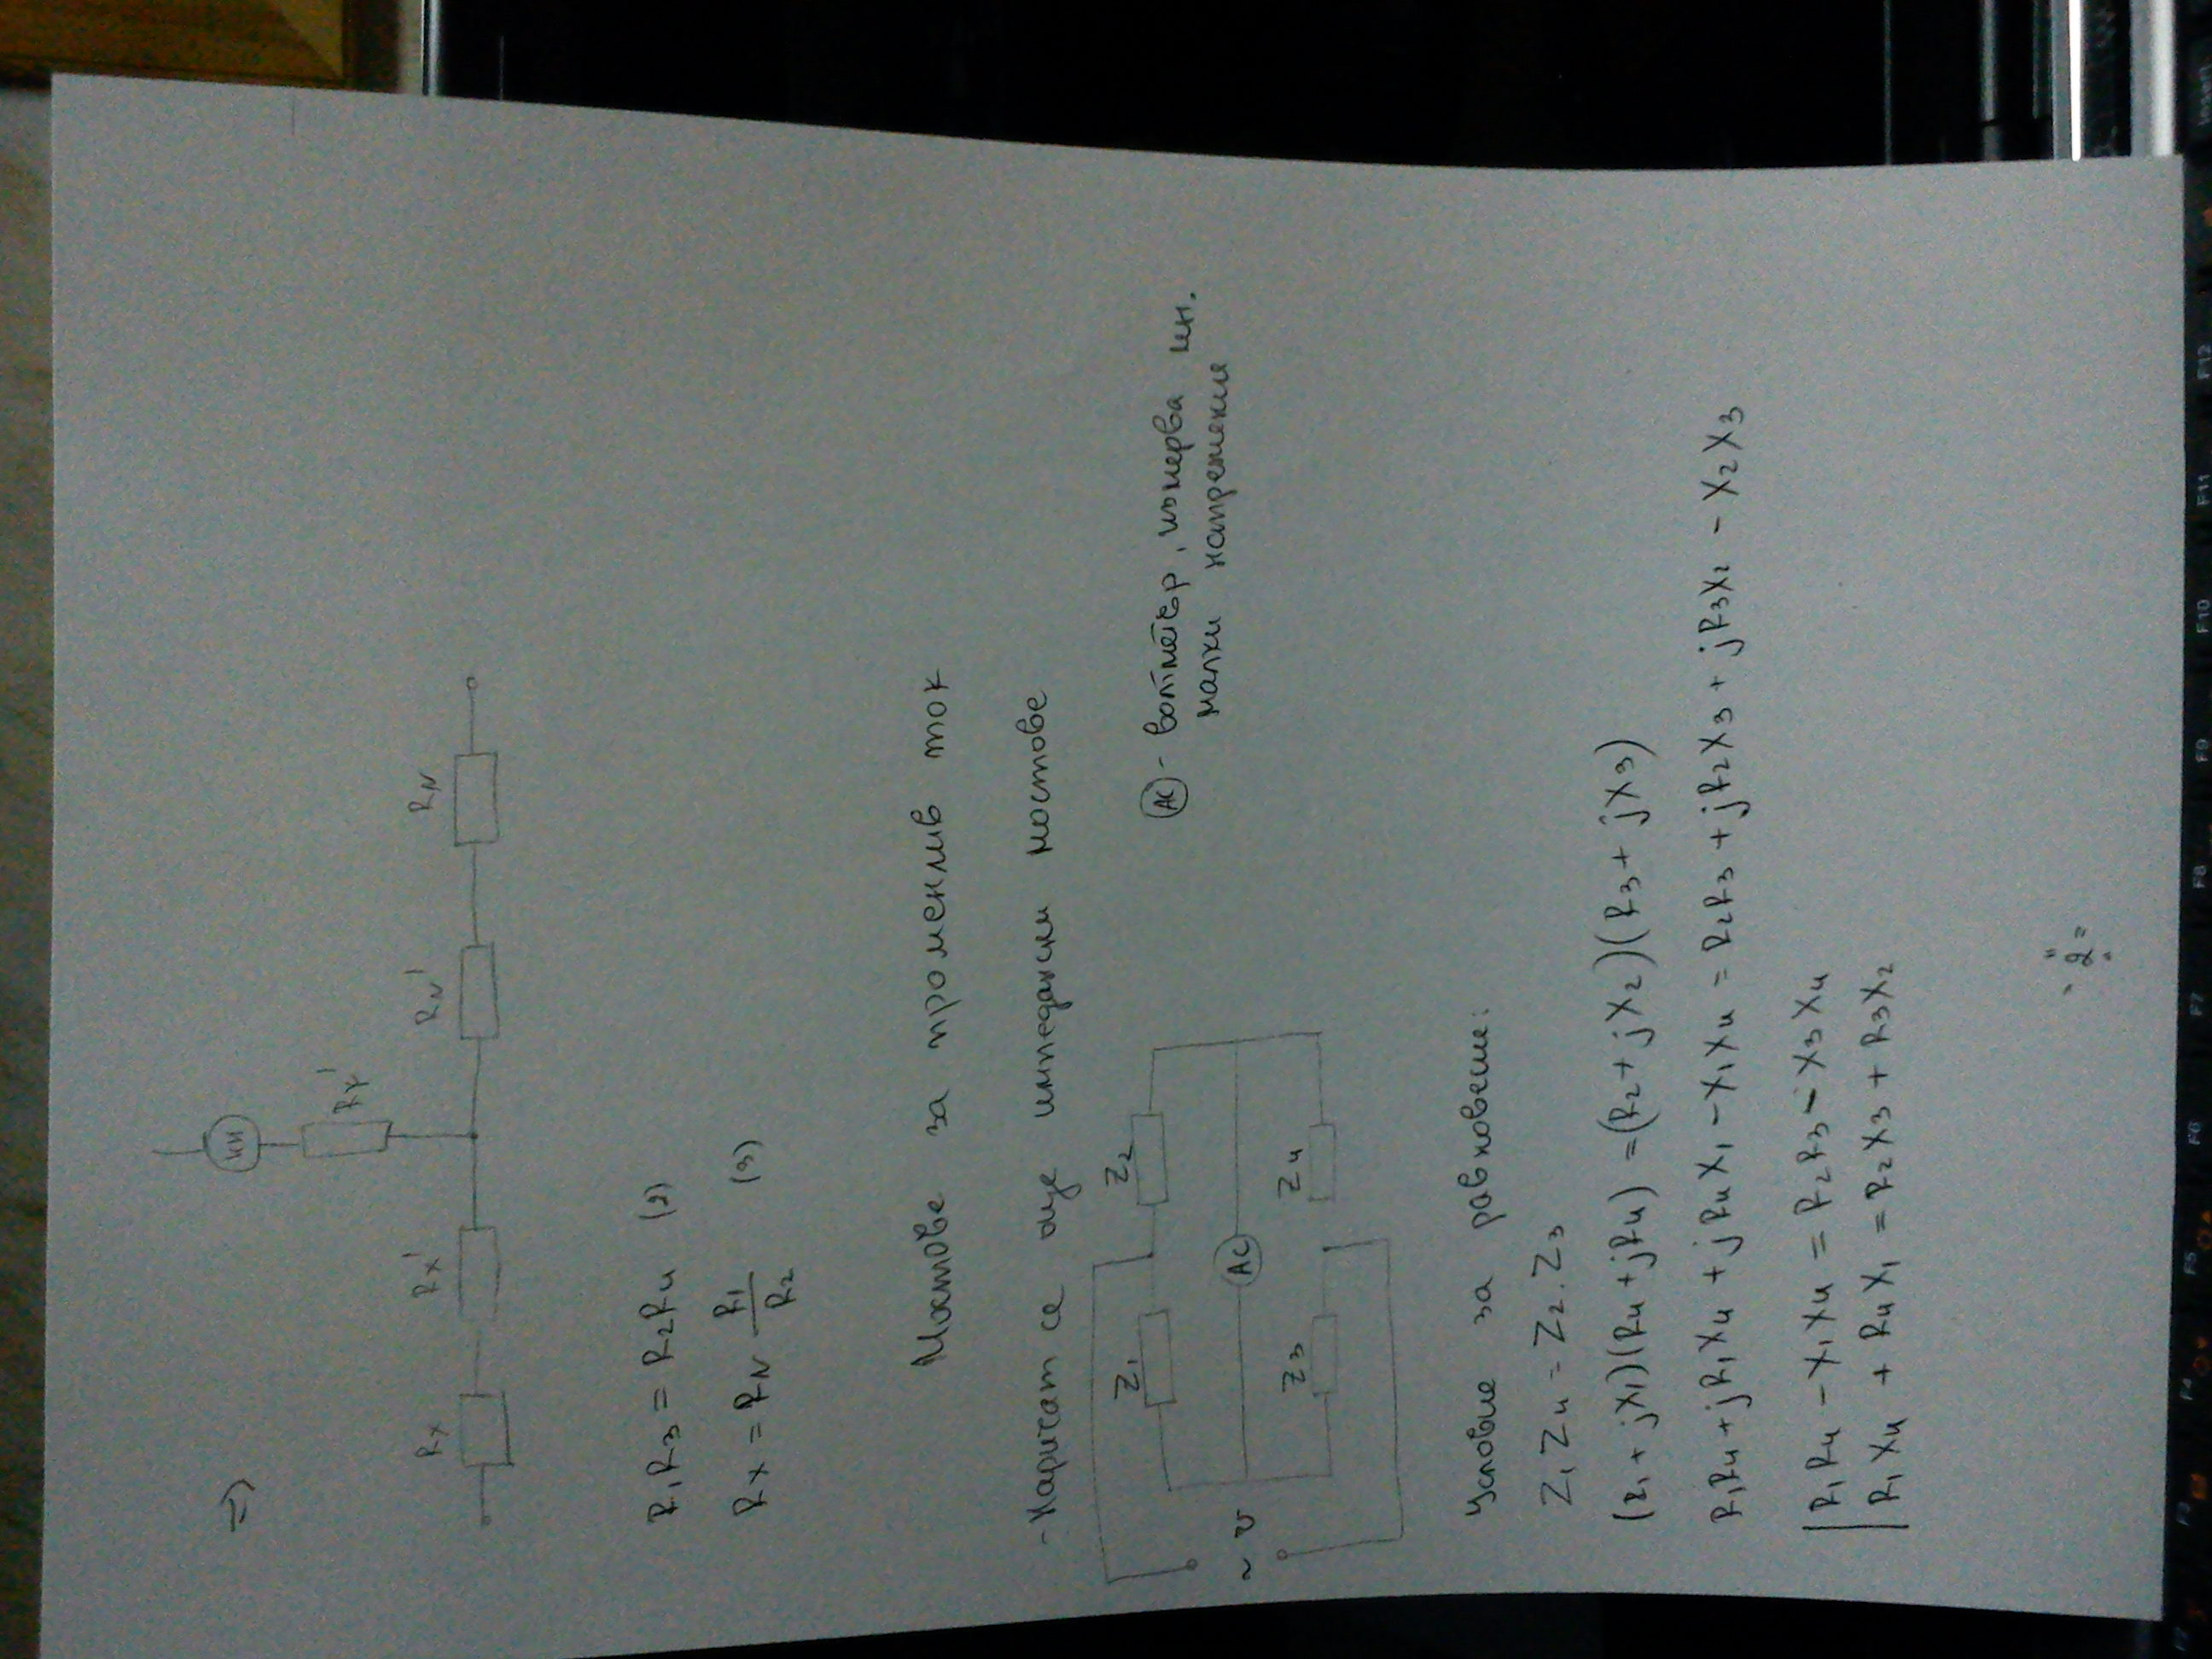 =>
НИ
RY'
RX RX' RN' RN
R1R3 = R2R4 (2)
RX = RN R1/R2 (3)
Мостове за променлив ток
- Наричат се още импедансни мостове
Z1 Z2
~ U AC
AC - волтметър, измерва мн.
малки напрежения
Z3 Z4
Условие за равновесие:
Z1Z4 = Z2.Z3
(r1 + jX1)(R4 + jR4) = (R2 + jX2)(R3 + jX3)
R1R4 + jR1X4 + jR4X1 - X1X4 = R2R3 + jR2X3 + jR3X2 - X2X3
R1R4 - X1X4 = R2R3 - X3X4
R1X4 + R4X1 = R2X3 + R3X2